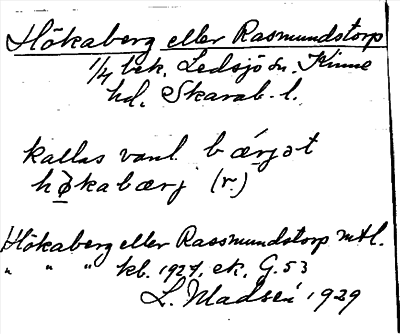 Hökaberg eller Rasmundstorp
1/4 bek. Ledsjö sn. Kinne
hd. Skarab. l.
kallas vanl. bærjət
høkabærj (r.)
Hökaberg eller Rassmundstorp mtl.
" " " kb. 1927. ek. G. 53
L. Madsén 1929